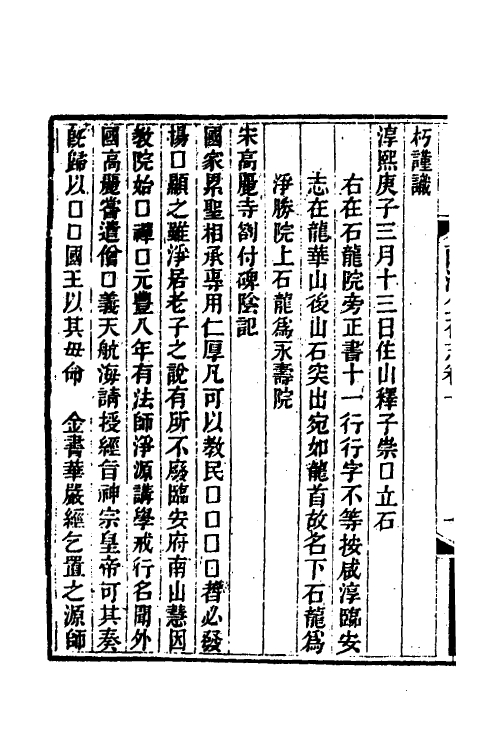 朽謹識
淳熙庚子三月十三日住山釋子崇口立石
右在石龍院旁正書十一行行字不等按咸淳臨安
志在龍華山後山石突出宛如龍首故名下石龍爲
淨勝院上石龍爲永壽院
宋高麗寺劄付碑陰記
國家累聖相承專用仁厚凡可以敎民口口口口者必發
揚口顯之雖淨居老子之說有所不廢臨安府南山慧因
敎院始口禪口元豐八年有法師淨源講學戒行名聞外
國高麗嘗遣僧口義天航海請授經旨神宗皇帝可其奏
旣歸以口口國王以其母命　金書華嚴經乞置之源師